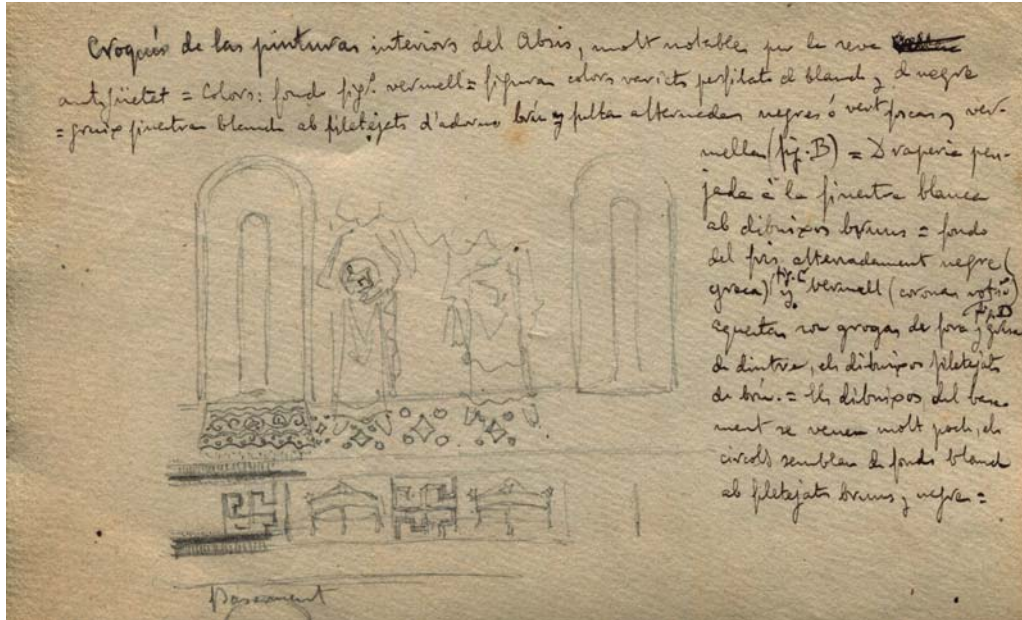 Croquis de las pinturas interiors del Absis, molt notable per la seva
antigüetat = Colors: fondo fig.ˢ vermell = figuras colors variats perfilats d blanch y d negre
= gruix finestra blanch ab filetejats d'adorno brú y fulla alternadas negres ó vert foscas y ver-
mellas (fig. B) = Draperia pen-
jada á la finestra blanca
ab dibuixos bruns = fondo
del fris alternadament negre (
greca) fig. C y vermell (coronas votiv)
fig. D
aquestas son grogas de fora y
de dintre, els dibuixos filetejats
de brú. = Els dibuixos del basa-
ment se veuen molt poch, els
circols semblan de fondo blanch
ab filetejats bruns y negre =
Basament